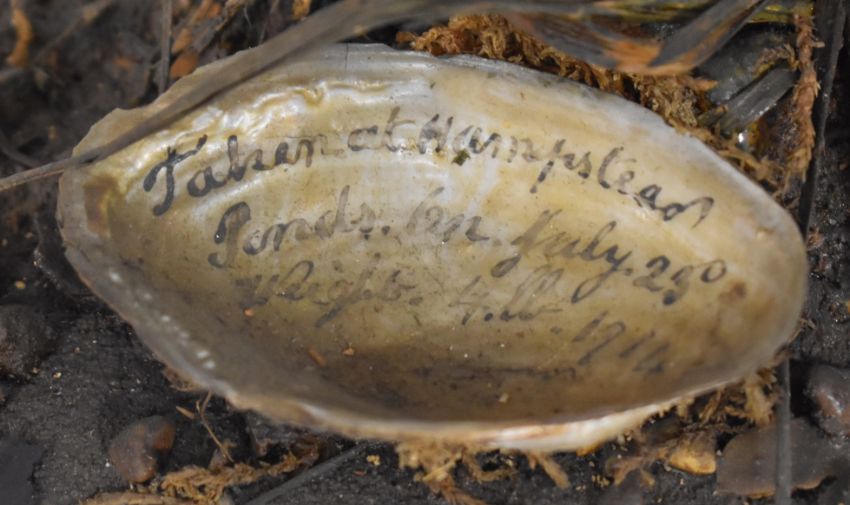 Taken at Hampstead
Ponds. On. July. 23
Weight. 4.lb. 1914